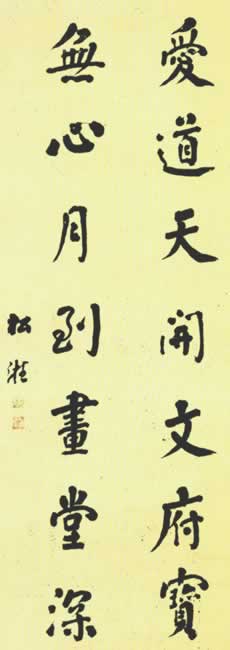 愛道天開文府寶
無心月到畫堂深
松湘